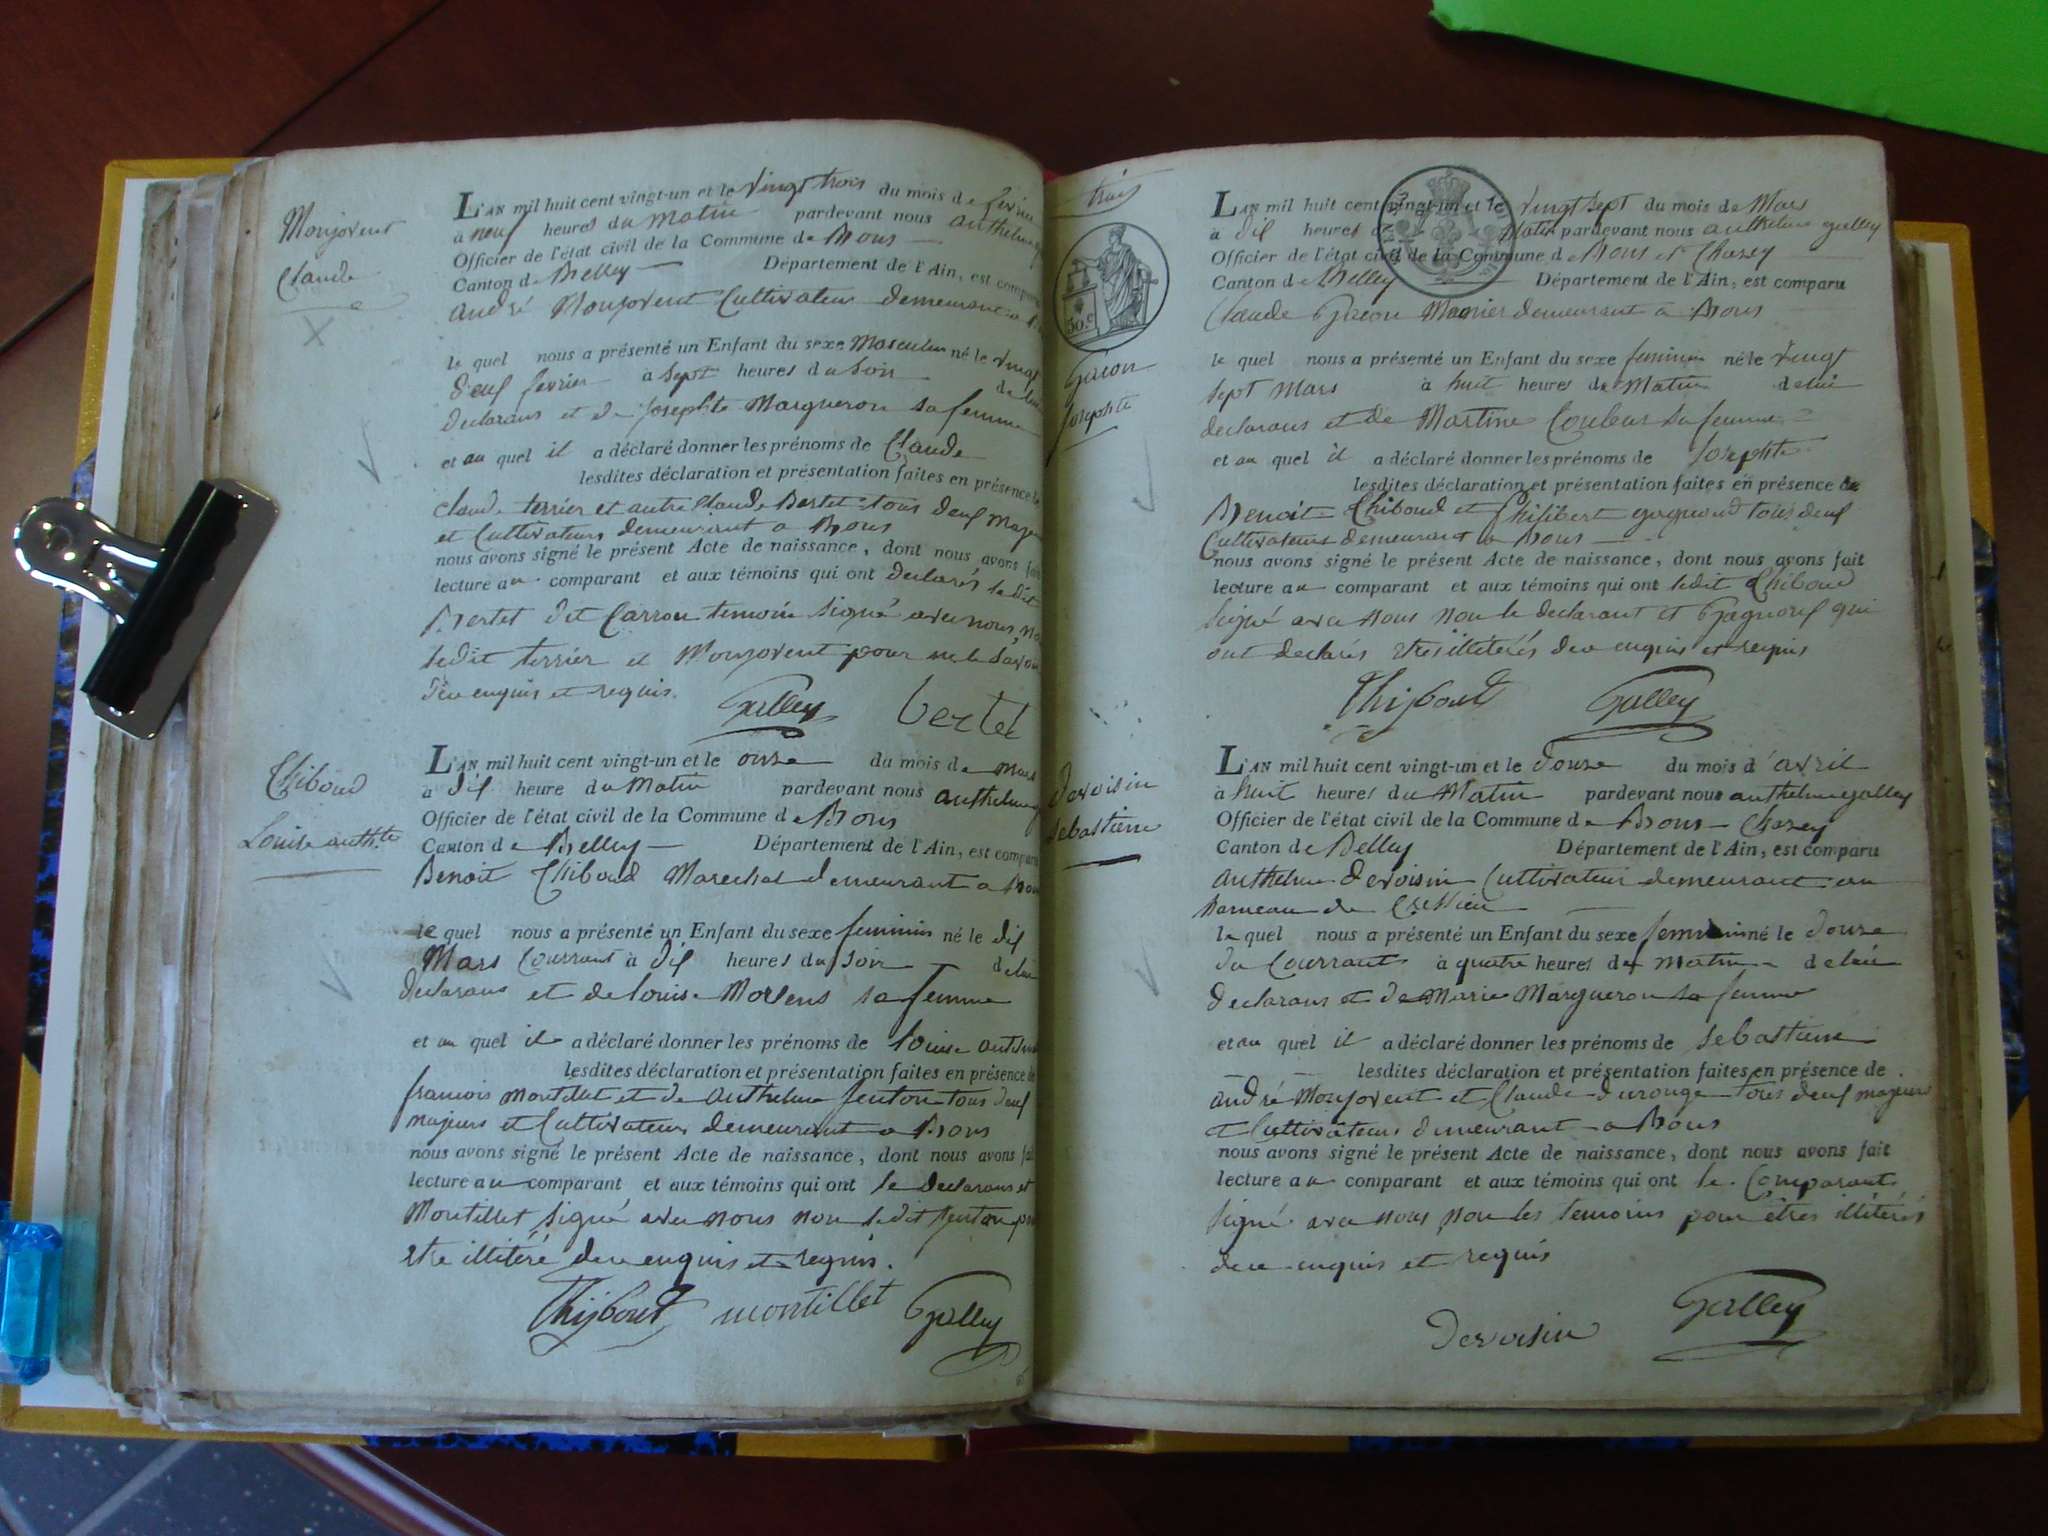 Monjovent
Claude
L'AN mil huit cent vingt-un et le vingt trois du mois de février
à neuf heures du matin pardevant nous anthelme
Officier de l'état civil de la Commune de Brons
Canton de Belley Département de l'Ain, est comparu
andré Monjovent Cultivateur demeurant a
le quel nous a présenté un Enfant du sexe Masculin né le vingt
deux fevrier à sept heures du soir de lui
declarans et de josephte Margueron sa femme
et au quel il a déclaré donner les prénoms de Claude
lesdites déclaration et présentation faites en présence de
claude terrier et autre Claude Bertet tous deux majeurs
et Cultivateurs demeurant a Brons
nous avons signé le présent Acte de naissance, dont nous avons fait
lecture au comparant et aux témoins qui ont declarés le dit
Bertet dit Carron temoin signé avec nous, non
ledit terrier et Monjovent pour ne le savoir
de ce enquis et requis.
Galley bertet
Thiboud
Louise anth.te
L'AN mil huit cent vingt-un et le onze du mois de mars
à dix heure du Matin pardevant nous anthelme
Officier de l'état civil de la Commune de Brons
Canton de Belley Département de l'Ain, est comparu
Benoit Thiboud Marechal demeurant a Brons
le quel nous a présenté un Enfant du sexe feminin né le dix
Mars Courrant à dix heures du soir de lui
declarans et de louise Morlens sa femme
et au quel il a déclaré donner les prénoms de louise
lesdites déclaration et présentation faites en présence de
francois montillet et de anthelme fenton tous deux
majeurs et Cultivateurs demeurant a Brons
nous avons signé le présent Acte de naissance, dont nous avons fait
lecture au comparant et aux témoins qui ont le declarans et
Montillet signé avec nous non ledit fenton pour
etre illitéré de ce enquis et requis.
Thiboud montillet Galley
trois
50.c
Gacon
Josephte
L'AN mil huit cent vingt-un et le vingt sept du mois de Mars
à dix heures du Matin pardevant nous anthelme galley
Officier de l'état civil de la Commune d Brons et Chazey
Canton de Belley Département de l'Ain, est comparu
Claude Gacon Meunier demeurant a Brons
le quel nous a présenté un Enfant du sexe feminin né le vingt
sept mars à huit heures de Matin de lui
declarans et de Martine Couleur sa femme
et au quel il a déclaré donner les prénoms de Josephte
lesdites déclaration et présentation faites en présence de
Benoit Thiboud et philibert gagnoud tous deux
Cultivateurs demeurant a Brons
nous avons signé le présent Acte de naissance, dont nous avons fait
lecture au comparant et aux témoins qui ont ledit Thiboud
signé avec nous non le declarant et Gagnoud qui
ont declarés etres illitérés de ce enquis et requis
Thiboud Galley
Dervoisin
sebastienne
L'AN mil huit cent vingt-un et le douze du mois d'avril
à huit heures du Matin pardevant nous anthelme galley
Officier de l'état civil de la Commune de Brons Chazey
Canton de Belley Département de l'Ain, est comparu
anthelme dervoisin Cultivateur demeurant au
hameau de Cressieu
le quel nous a présenté un Enfant du sexe feminin né le douze
du Courrant à quatre heures de matin de lui
declarans et de Marie Margueron sa femme
et au quel il a déclaré donner les prénoms de sebastienne
lesdites déclaration et présentation faites en présence de
andré Monjovent et Claude durouge tous deux majeurs
et Cultivateurs demeurant a Brons
nous avons signé le présent Acte de naissance, dont nous avons fait
lecture au comparant et aux témoins qui ont le Comparant
signé avec nous non les temoins pour êtres illitérés
de ce enquis et requis
Dervoisin Galley